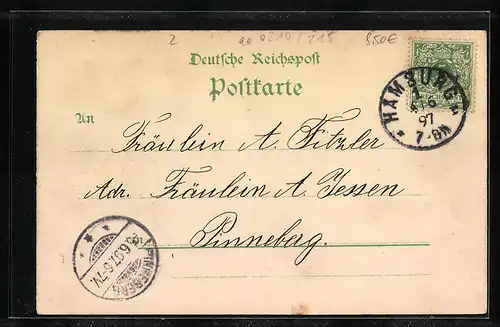 2 20 0210/215 850€
Deutsche Reichspost
Postkarte
An
Fräulein A. Fitzler
Adr. Fräulein A. Jessen
in Pinneberg.
* HAMBURG
97
7-8N
PINNEBERG